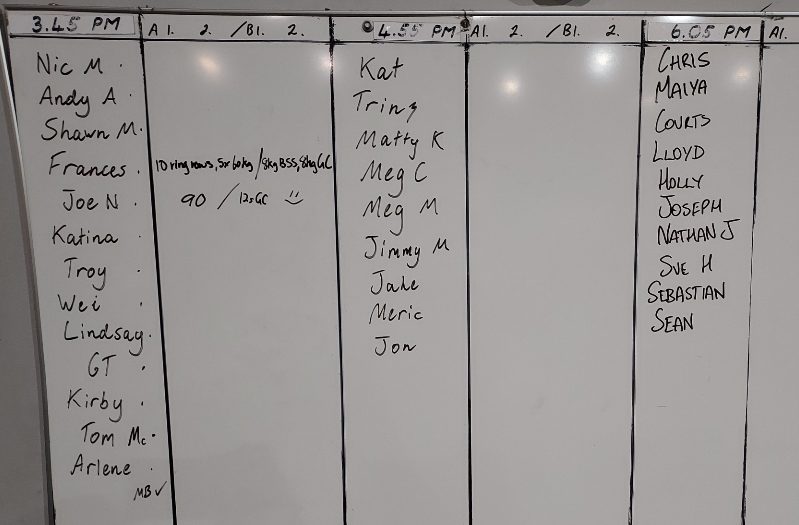 3.45 PM A 1. 2. /B1. 2. 4.55 PM A1. 2. /B1. 2. 6.05 PM A1.
Nic M .
Andy A .
Shawn M.
Frances . 10 ring rows, 5x60kg / 8kg BSS, 8kg GC
Joe N . 90 / 12xGC
Katina .
Troy .
Wei .
Lindsay.
GT .
Kirby .
Tom Mc.
Arlene .
MB ✓
Kat
Trinz
Matty K
Meg C
Meg M
Jimmy M
Jake
Meric
Jon
CHRIS
MAIYA
COURTS
LLOYD
HOLLY
JOSEPH
NATHAN J
SUE H
SEBASTIAN
SEAN